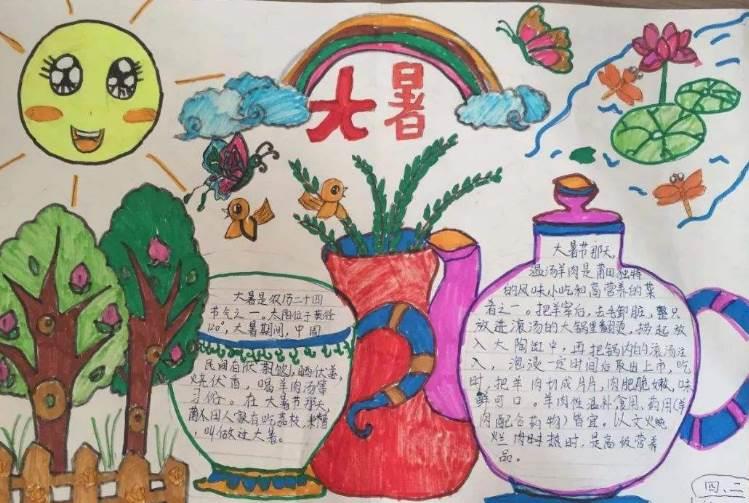 大暑
大暑是农历二十四
节气之一，太阳位于黄经
120°，大暑期间，中国
民间有饮暑伏晒伏姜，
烧伏香，喝羊肉汤等
习俗。在大暑节那天
莆田人家有吃荔枝，
叫做过大暑。
大暑节那天，
温汤羊肉是莆田独特
的风味小吃和高营养的菜
肴之一。把羊宰后，去毛卸脏，整只
放进滚汤的大锅里翻烫，捞起放
入大陶缸中，再把锅内的滚汤注
入，泡浸一定时间后取出上市，吃
时，把羊肉切成片片，肉肥脆嫩，味
鲜可口。羊肉性温补，食用、药用(羊
肉配合药物)皆宜。以文火炖
烂，肉时热时，是高级营养
品。
四、二